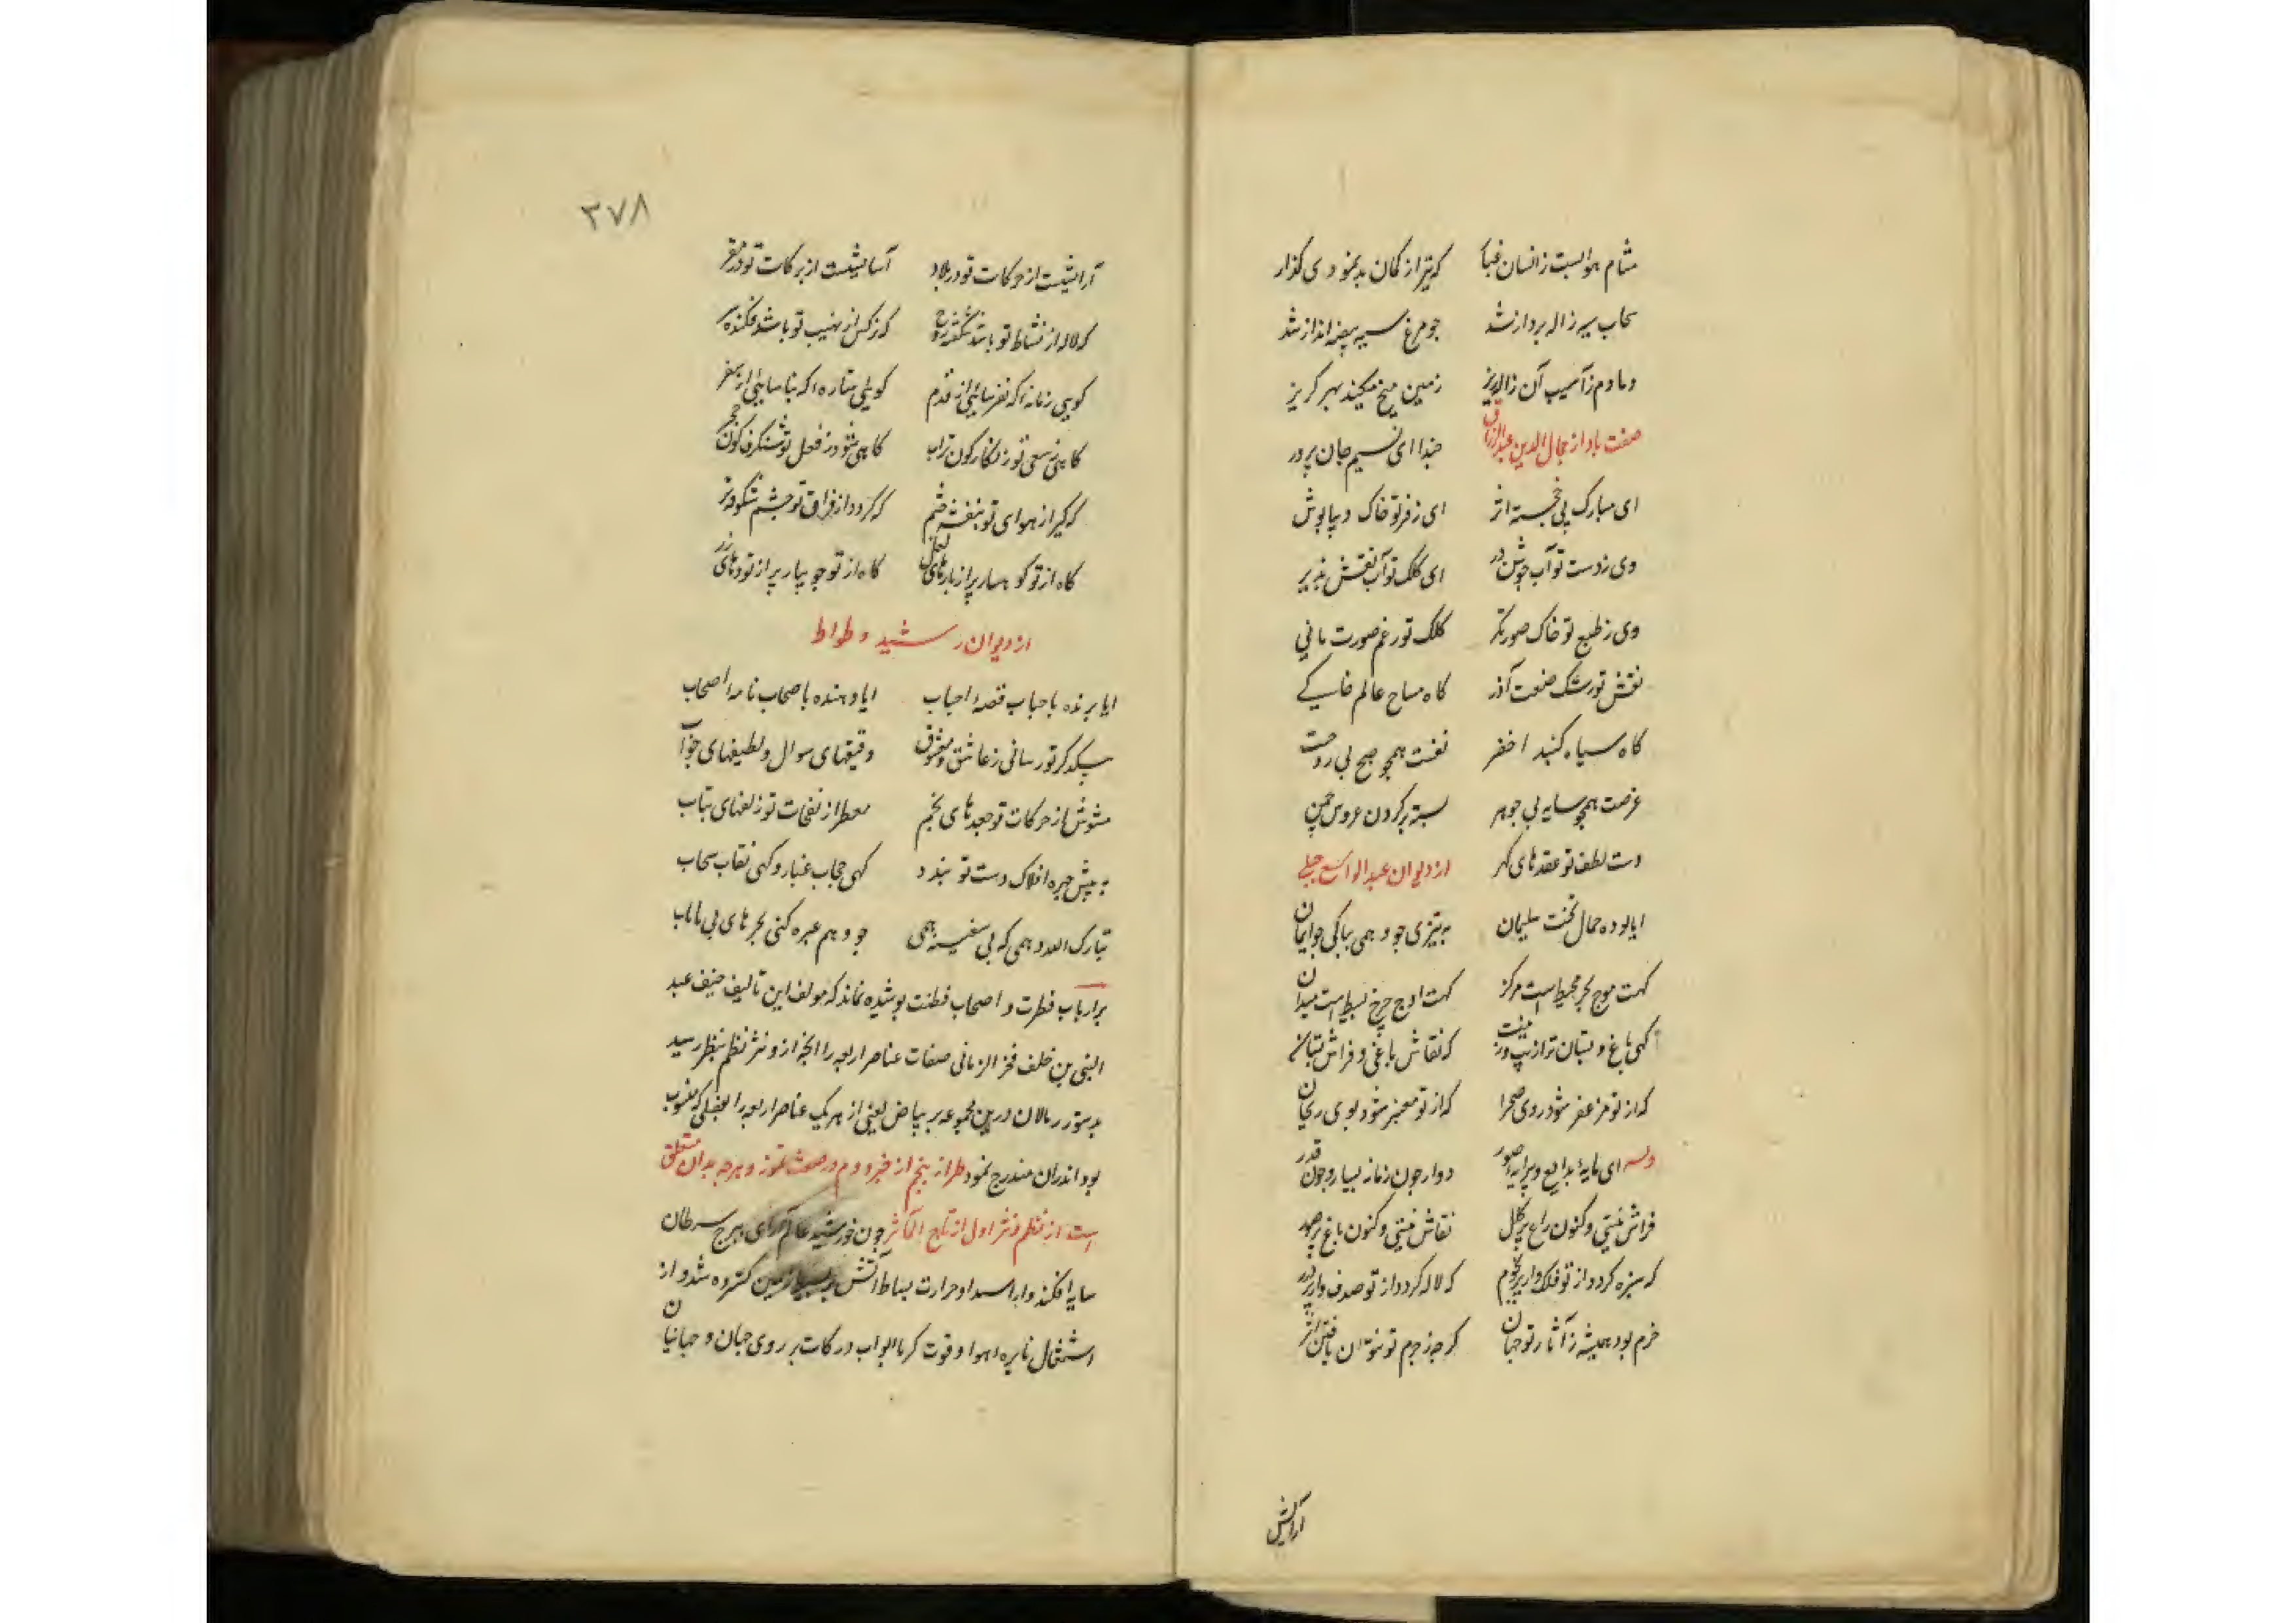 مشام هوا بست زانسان غبار که تیر از کمان بد نمودی گذار
سحاب سیه ژاله پرداز شد چو مرغ سیه بیضه انداز شد
دمادم ز آسیب آن ژاله ریز زمین میخ میکند بهر گریز
صفت باد از جمال الدین عبدالرزاق حبذا ای نسیم جان پرور
ای مبارک پی خجسته اثر ای ز فر تو خاک دیباپوش
وی ز دست تو آب جوشن در ای کلک تو آب نقش پذیر
وی ز طبع تو خاک صورتگر کلک تو رغم صورت مانی
نقش تو رشک صنعت آذر گاه مساح عالم خاکی
گاه سیاه گنبد اخضر نفست همچو صبح بی روحت
غرضت همچو سایه بی جوهر بسته بر گردن عروس چمن
دست لطف تو عقدهای گهر از دیوان عبدالواسع جبلی
ایا بوده حمال تخت سلیمان به تیزی چو وهمی بپاکی چو ایمان
گهت موج بحر محیط است مرکز گهت اوج چرخ بسیط است میدان
گهی باغ و بستان ترا زیب و زینت که نقاش باغی و فراش بستان
که از تو مزعفر شود روی صحرا که از تو معنبر شود بوی ریحان
وله ای مایهٔ بدایع و پیرایه صور دوار چون زمانه و سیار چون قدر
فراش نیستی و کنون راغ پر گل نقاش نیستی و کنون باغ پر صور
که سبزه گردد از تو فلک وار پر نجوم که لاله گردد از تو صدف وار پر درر
خرم بود همیشه ز آثار تو جهان گرچه ز جرم تو نتوان یافتن اثر
آرایش
۳۷۸
آرایشیست از حرکات تو در بلاد آسایشیست از برکات تو در مقر
که لاله از نشاط تو باشد شگفته رخ که نرگس از نهیب تو باشد فکنده سر
گویی زمانه که نفرسایی از قدم گویی ستاره که نیاسایی از سفر
گاهی ز سعی تو زنگارگون تراب گاهی شود ز فعل تو شنگرف گون حجر
که گیر از هوای تو بنفشه خم که گردد از فراق تو چشم شکوفه تر
گاه از تو کوهسار پر از بارهای لعل گاه از تو جویبار پر از تودهای زر
از دیوان رشید وطواط
ایا برنده باحباب قصهٔ احباب ایا دهنده باصحاب نامه اصحاب
بیکدگر تو رسانی ز عاشق و معشوق دقیقهای سوال و لطیفهای جواب
مشوش از حرکات تو جعدهای بخم معطر از نفحات تو زلفهای بتاب
به پیش چهره افلاک دست تو بندد گهی حجاب غبار و گهی نقاب سحاب
تبارک الله وهمی که بی سفینه همی چو وهم عبره کنی بحرهای بی پایاب
بر ارباب فطرت و اصحاب فطنت پوشیده نماند که مولف این تالیف ضعیف عبد
النبی بن خلف فخر الزمانی صفات عناصر اربعه را آنچه از نثر و نظم بنظر رسید
بدستور رمالان درین مجموعه بر بیاض یعنی از هر یک عناصر اربعه را بفصلی که منسوب
بود اندران مندرج نمود طراز پنجم از خبر دوم در صفت تموز و هرچه بدان متعلق
است از نظم و نثر اول از تاج المآثر چون خورشید عالم آرای ببرج سرطان
سایه افکند و ابر اسد او حرارت بساط آتش بر بسیط زمین گسترده شد و از
اشتعال نایره هوا و قوت گرما ابواب درکات بر روی جهان و جهانیان